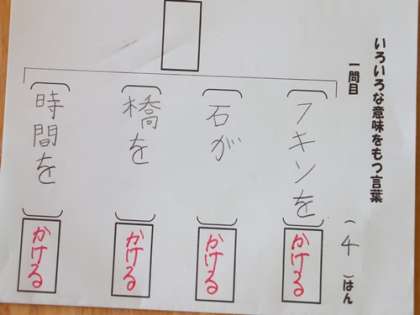 いろいろな意味をもつ言葉
一問目
(4)はん
(フキンを) かける
(石が) かける
(橋を) かける
(時間を) かける